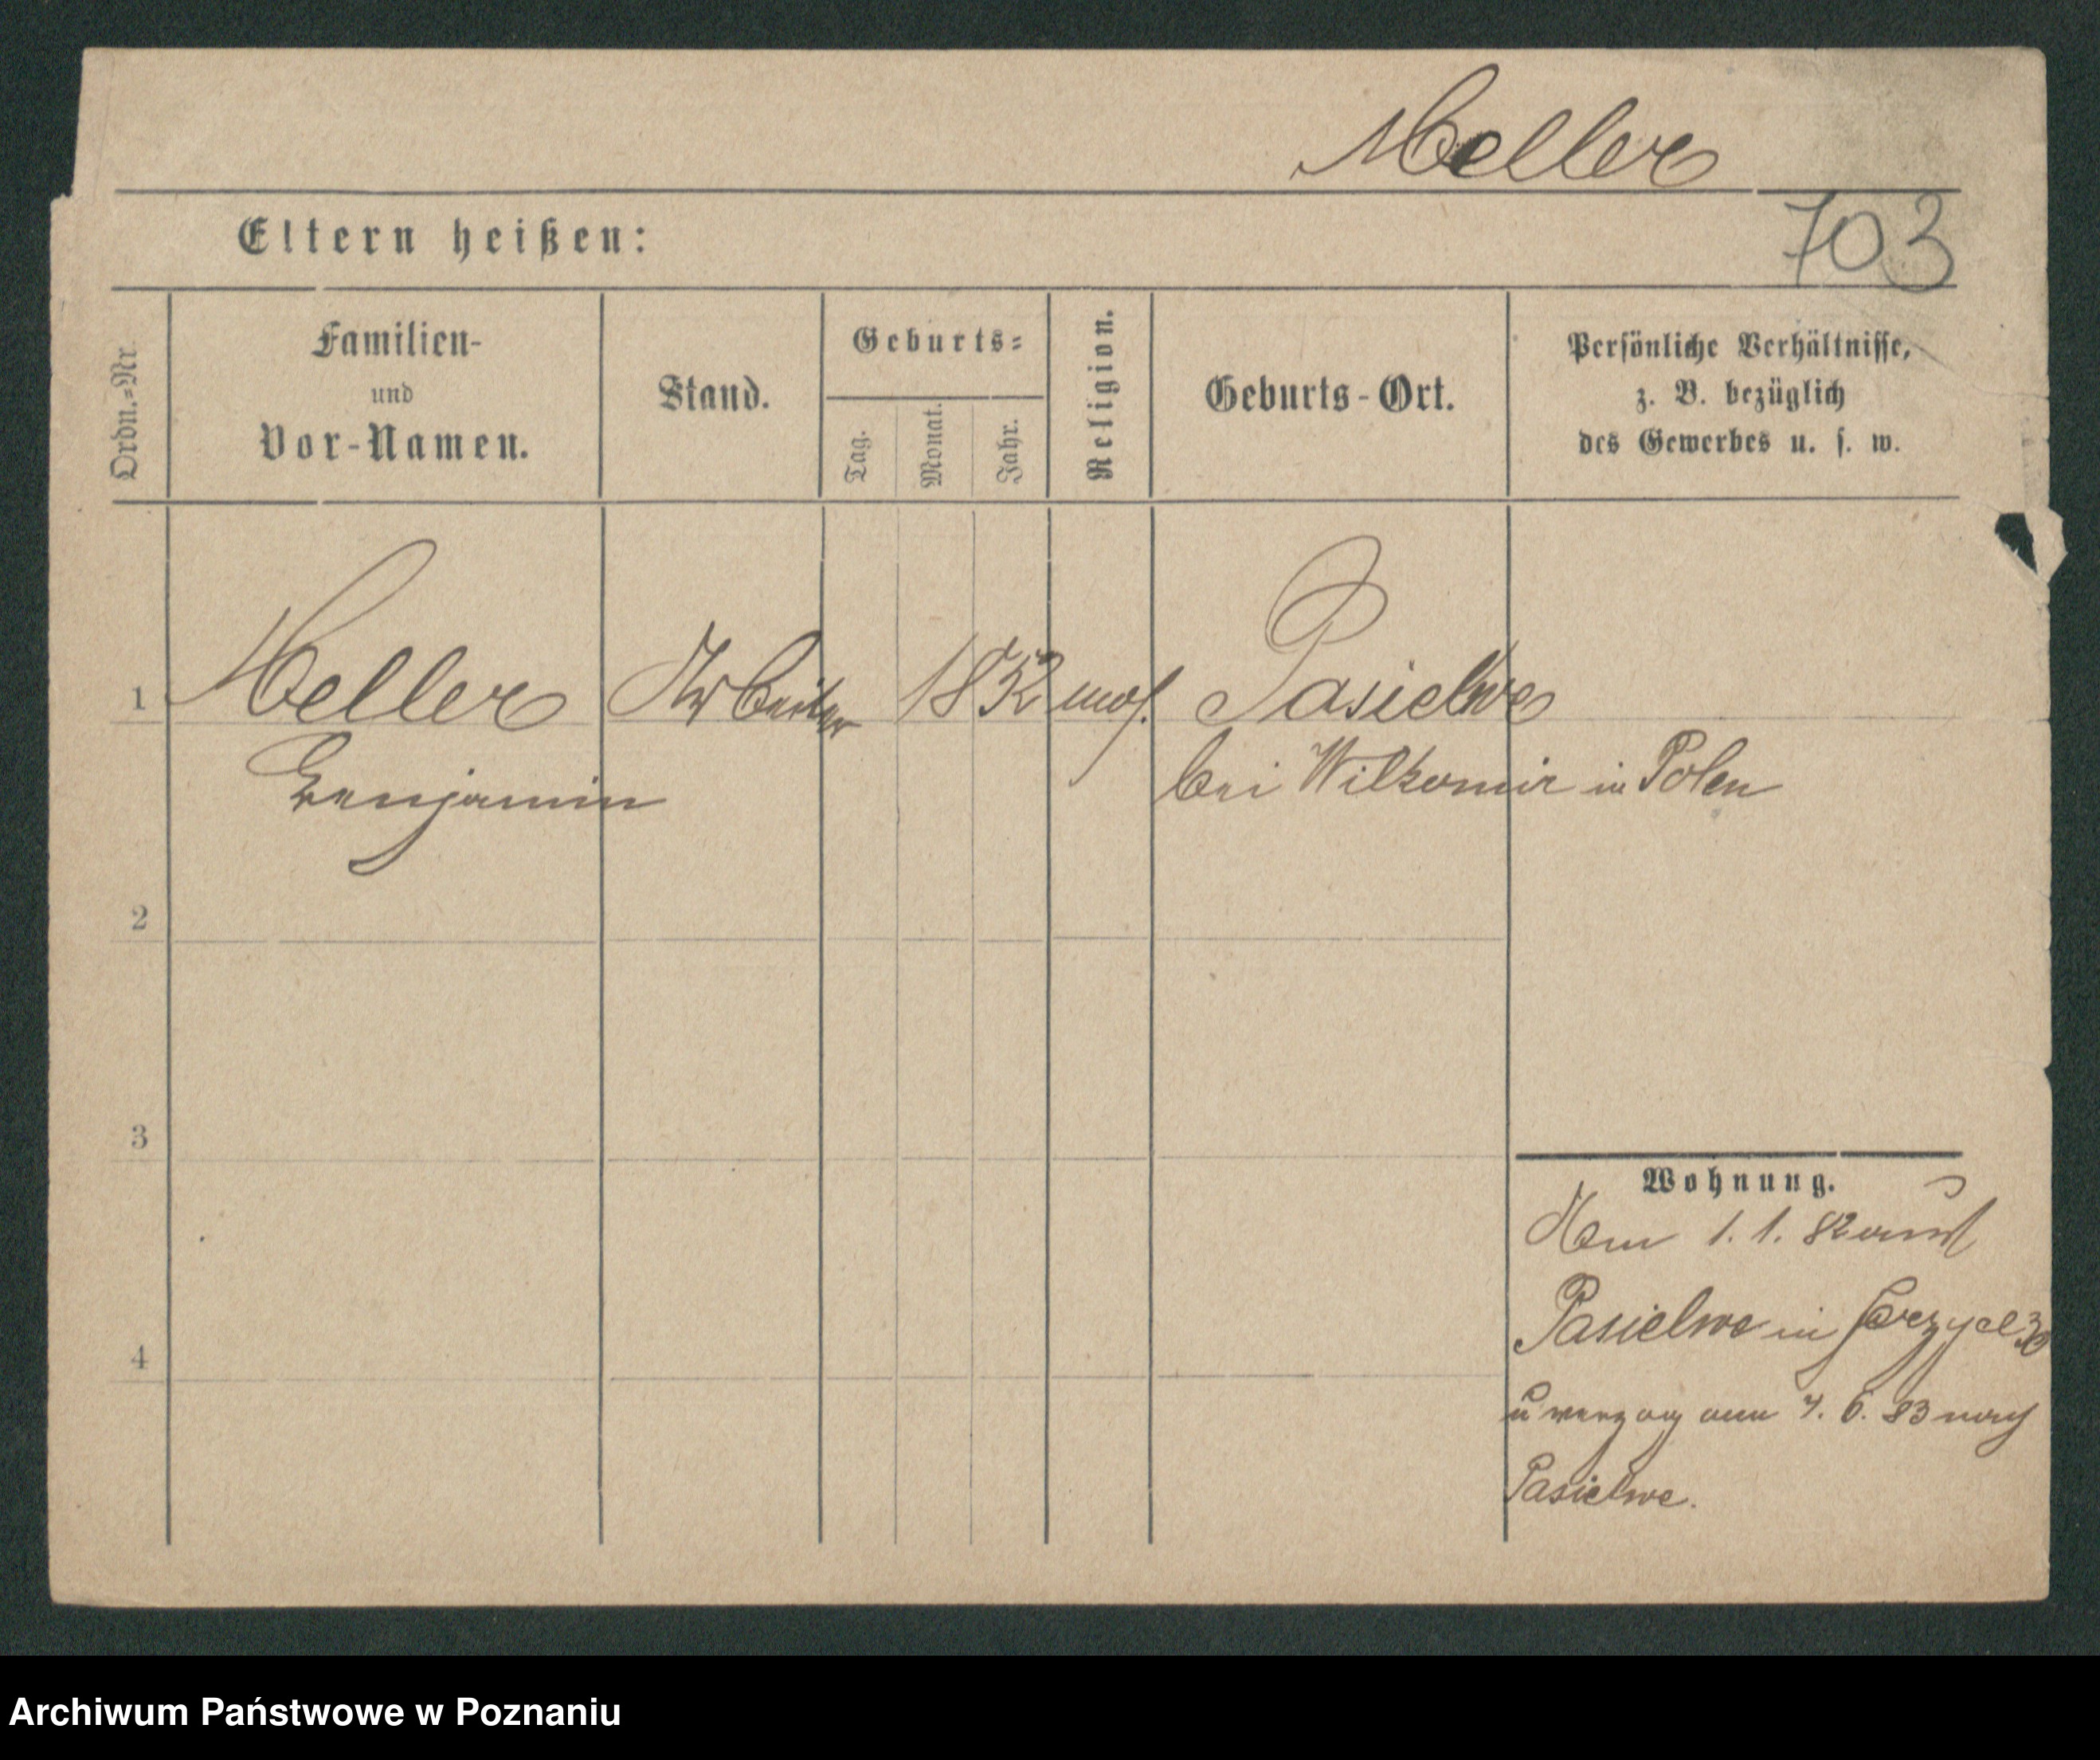 Meller
703
Eltern heißen:
Ordn.=Nr.
Familien-
und
Vor-Namen.
Stand.
Geburts=
Tag.
Monat.
Jahr.
Religion.
Geburts-Ort.
Persönliche Verhältnisse,
z. B. bezüglich
des Gewerbes u. s. w.
1 Meller Arbeiter 1852 mos. Pasielwe
Benjamin bei Wilkomir in Polen
2
3
4
Wohnung.
1. 1. 82
Pasielwe in
u verzog am 7. 6. 83 nach
Pasielwe.
Archiwum Państwowe w Poznaniu